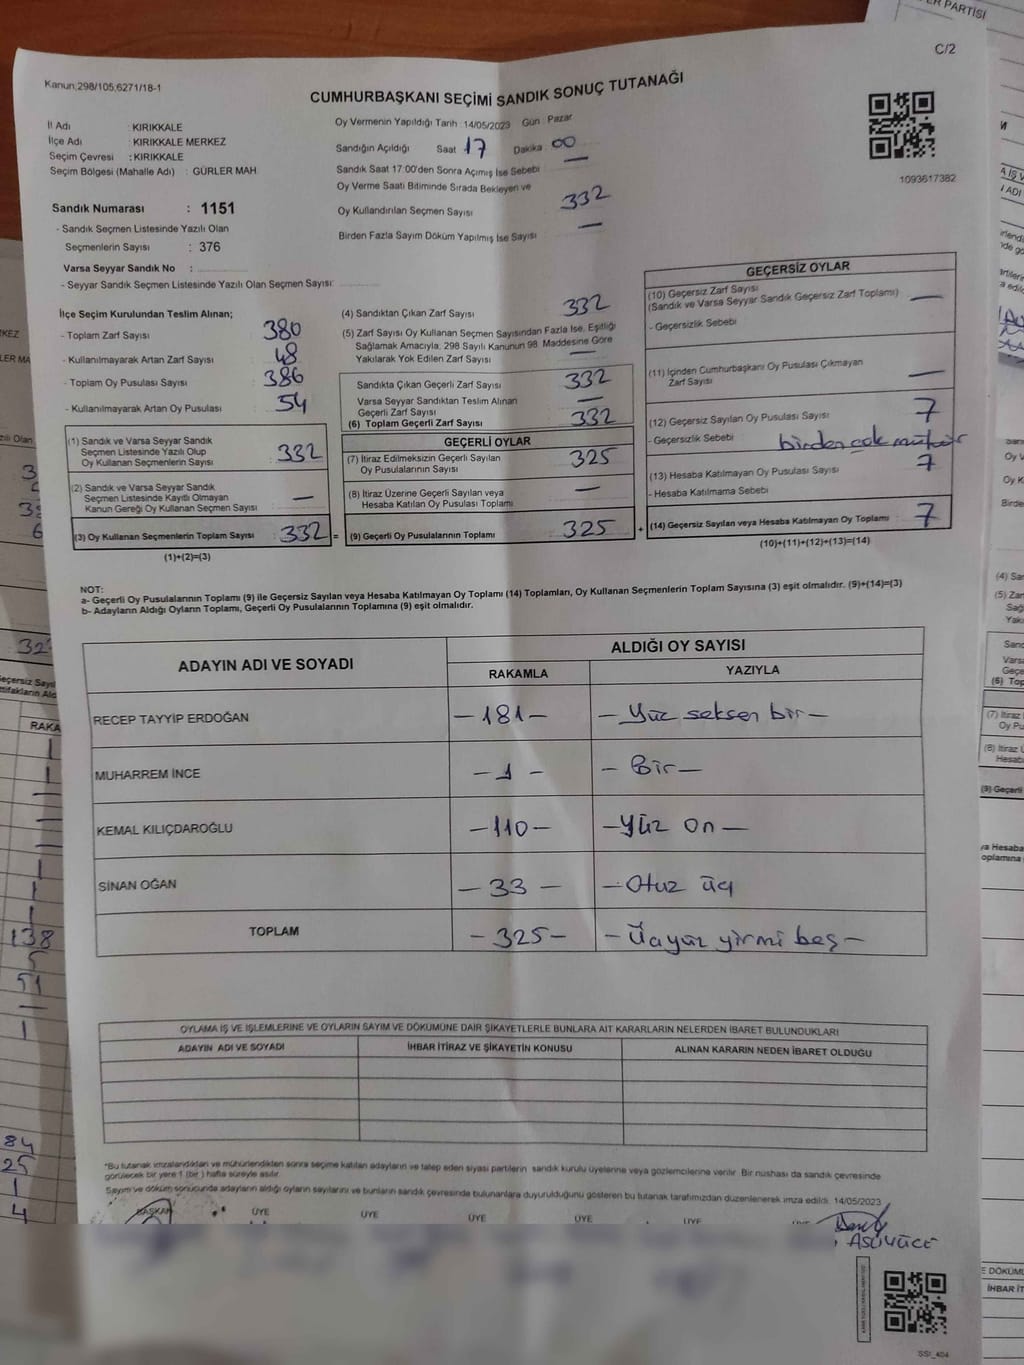 C/2
Kanun;298/105,6271/18-1
CUMHURBAŞKANI SEÇİMİ SANDIK SONUÇ TUTANAĞI
İl Adı : KIRIKKALE
İlçe Adı : KIRIKKALE MERKEZ
Seçim Çevresi : KIRIKKALE
Seçim Bölgesi (Mahalle Adı) : GÜRLER MAH
Sandık Numarası : 1151
- Sandık Seçmen Listesinde Yazılı Olan
Seçmenlerin Sayısı : 376
Varsa Seyyar Sandık No :
- Seyyar Sandık Seçmen Listesinde Yazılı Olan Seçmen Sayısı:
Oy Vermenin Yapıldığı Tarih :14/05/2023 Gün Pazar
Sandığın Açıldığı Saat 17 Dakika 00
Sandık Saat 17:00'den Sonra Açmış İse Sebebi —
Oy Verme Saati Bitiminde Sırada Bekleyen ve
Oy Kullandırılan Seçmen Sayısı 332
Birden Fazla Sayım Döküm Yapılmış İse Sayısı —
1093617382
İlçe Seçim Kurulundan Teslim Alınan;
- Toplam Zarf Sayısı 380
- Kullanılmayarak Artan Zarf Sayısı 48
- Toplam Oy Pusulası Sayısı 386
- Kullanılmayarak Artan Oy Pusulası 54
(1) Sandık ve Varsa Seyyar Sandık
Seçmen Listesinde Yazılı Olup
Oy Kullanan Seçmenlerin Sayısı 332
(2) Sandık ve Varsa Seyyar Sandık
Seçmen Listesinde Kayıtlı Olmayan
Kanun Gereği Oy Kullanan Seçmen Sayısı —
(3) Oy Kullanan Seçmenlerin Toplam Sayısı : 332 =
(1)+(2)=(3)
(4) Sandıktan Çıkan Zarf Sayısı 332
(5) Zarf Sayısı Oy Kullanan Seçmen Sayısından Fazla İse, Eşitliği
Sağlamak Amacıyla, 298 Sayılı Kanunun 98. Maddesine Göre
Yakılarak Yok Edilen Zarf Sayısı —
Sandıkta Çıkan Geçerli Zarf Sayısı 332
Varsa Seyyar Sandıktan Teslim Alınan
Geçerli Zarf Sayısı —
(6) Toplam Geçerli Zarf Sayısı 332
GEÇERLİ OYLAR
(7) İtiraz Edilmeksizin Geçerli Sayılan
Oy Pusulalarının Sayısı 325
(8) İtiraz Üzerine Geçerli Sayılan veya
Hesaba Katılan Oy Pusulası Toplamı —
(9) Geçerli Oy Pusulalarının Toplamı 325 +
GEÇERSİZ OYLAR
(10) Geçersiz Zarf Sayısı
(Sandık ve Varsa Seyyar Sandık Geçersiz Zarf Toplamı) —
- Geçersizlik Sebebi
(11) İçinden Cumhurbaşkanı Oy Pusulası Çıkmayan
Zarf Sayısı —
(12) Geçersiz Sayılan Oy Pusulası Sayısı 7
- Geçersizlik Sebebi birden çok mühür
(13) Hesaba Katılmayan Oy Pusulası Sayısı 7
- Hesaba Katılmama Sebebi
(14) Geçersiz Sayılan veya Hesaba Katılmayan Oy Toplamı : 7
(10)+(11)+(12)+(13)=(14)
NOT:
a- Geçerli Oy Pusulalarının Toplamı (9) ile Geçersiz Sayılan veya Hesaba Katılmayan Oy Toplamı (14) Toplamları, Oy Kullanan Seçmenlerin Toplam Sayısına (3) eşit olmalıdır. (9)+(14)=(3)
b- Adayların Aldığı Oyların Toplamı, Geçerli Oy Pusulalarının Toplamına (9) eşit olmalıdır.
ADAYIN ADI VE SOYADI
ALDIĞI OY SAYISI
RAKAMLA YAZIYLA
RECEP TAYYİP ERDOĞAN -181- -Yüz seksen bir-
MUHARREM İNCE -1- -Bir-
KEMAL KILIÇDAROĞLU -110- -Yüz on-
SİNAN OĞAN -33- -Otuz üç
TOPLAM -325- -Üçyüz yirmi beş-
OYLAMA İŞ VE İŞLEMLERİNE VE OYLARIN SAYIM VE DÖKÜMÜNE DAİR ŞİKAYETLERLE BUNLARA AİT KARARLARIN NELERDEN İBARET BULUNDUKLARI
ADAYIN ADI VE SOYADI İHBAR İTİRAZ VE ŞİKAYETİN KONUSU ALINAN KARARIN NEDEN İBARET OLDUĞU
*Bu tutanak imzalandıktan ve mühürlendikten sonra seçime katılan adayların ve talep eden siyasi partilerin sandık kurulu üyelerine veya gözlemcilerine verilir. Bir nüshası da sandık çevresinde
görülecek bir yere 1 (bir ) hafta süreyle asılır.
Sayım ve döküm sonucunda adayların aldığı oyların sayılarını ve bunların sandık çevresinde bulunanlara duyurulduğunu gösteren bu tutanak tarafımızdan düzenlenerek imza edildi. 14/05/2023
BAŞKAN ÜYE ÜYE ÜYE ÜYE ÜYE